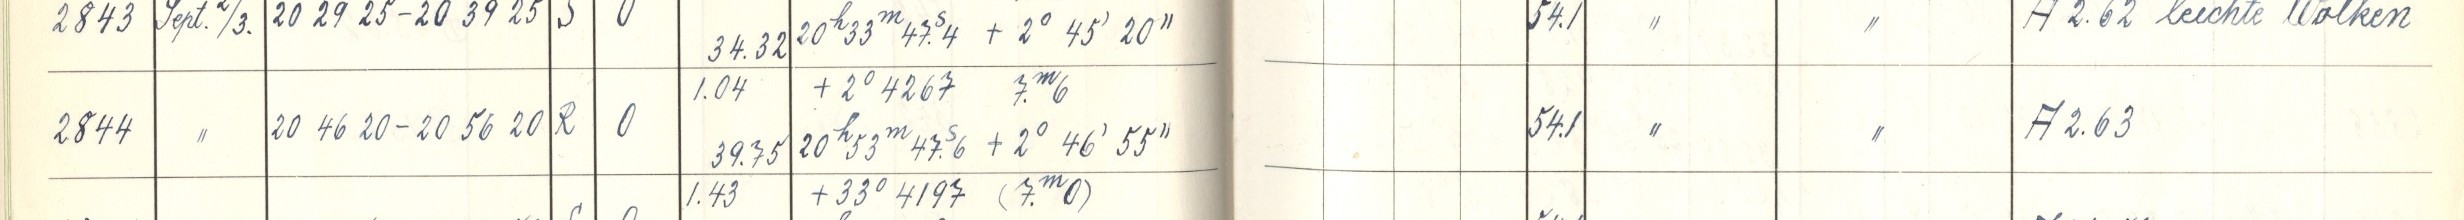 2843 Sept. 2/3. 20 29 25 – 20 39 25 S 0 34.32 20h 33m 47s.4 + 2° 45' 20" 54.1 " " A 2.62 leichte Wolken
1.04 + 2° 4267 7.m6
2844 " 20 46 20 – 20 56 20 R 0 54.1 " " A 2.63
39.75 20h 53m 47s.6 + 2° 46' 55"
1.43 + 33° 4197 (7.m0)